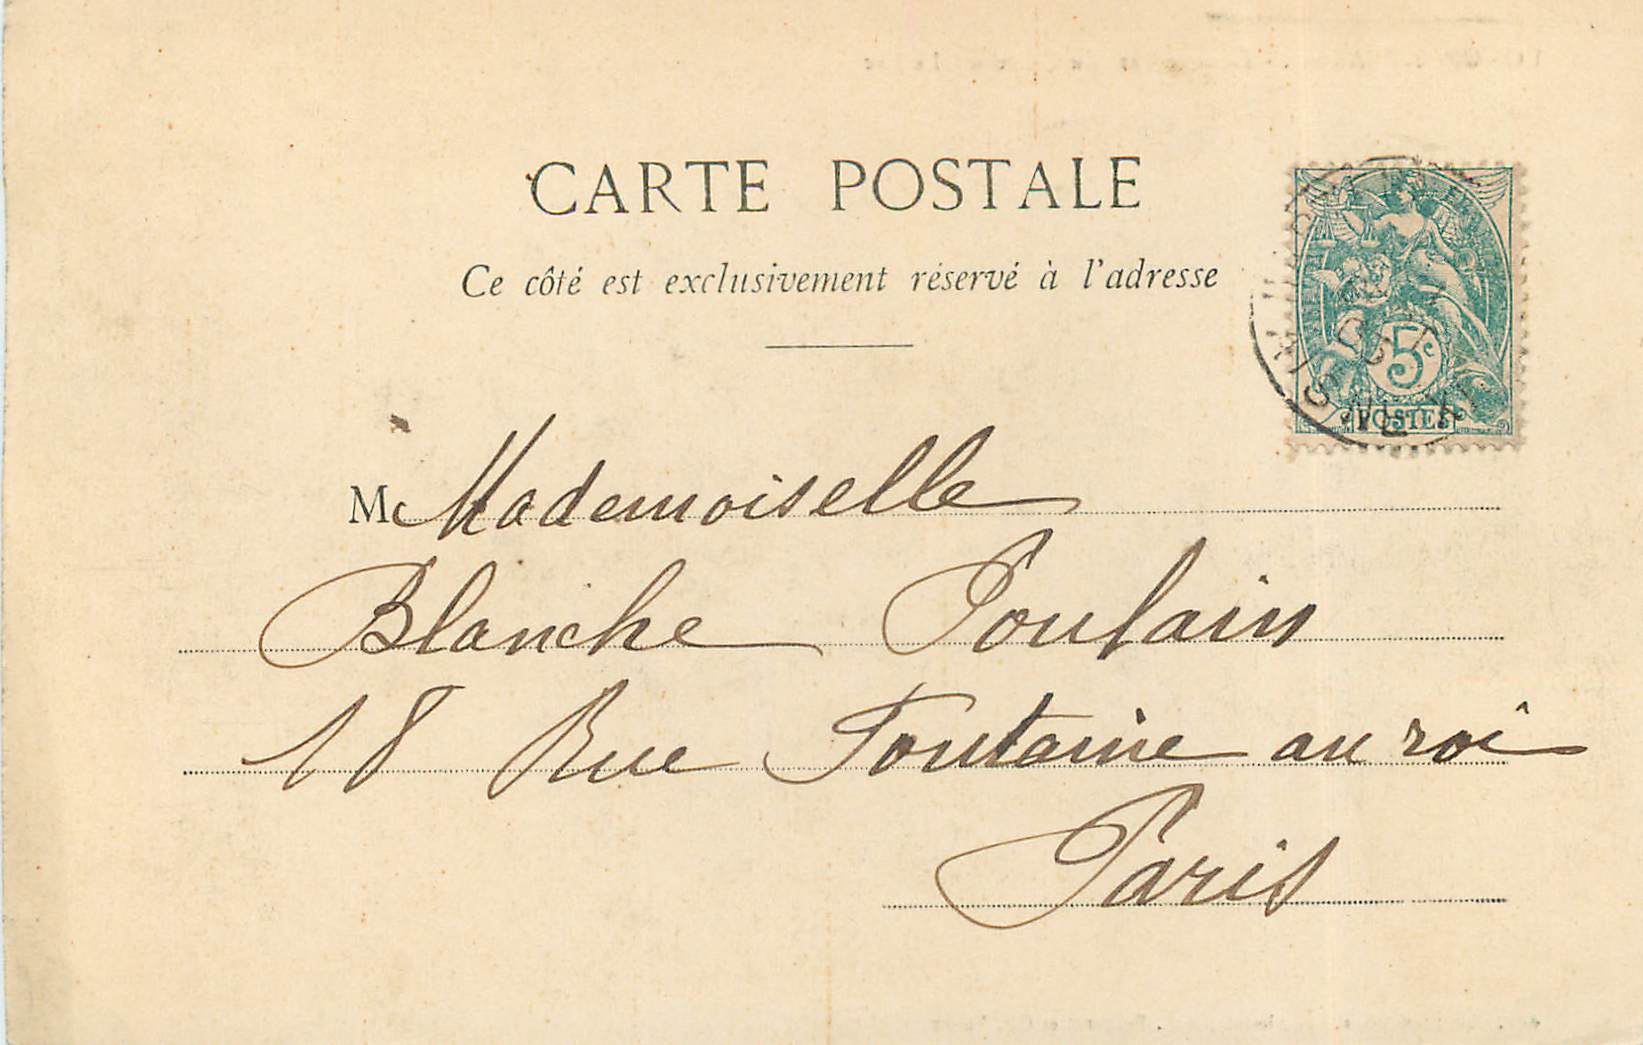 CARTE POSTALE
Ce côté est exclusivement réservé à l'adresse
5c
POSTES
M Mademoiselle
Blanche Poulain
18 Rue Fontaine au roi
Paris